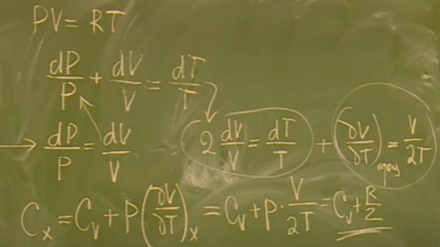 PV = RT
dP/P + dV/V = dT/T
→ dP/P = dV/V 2 dV/V = dT/T + (∂V/∂T) = V/2T
Cx = Cv + P(∂V/∂T)x = Cv + P · V/2T = Cv + R/2